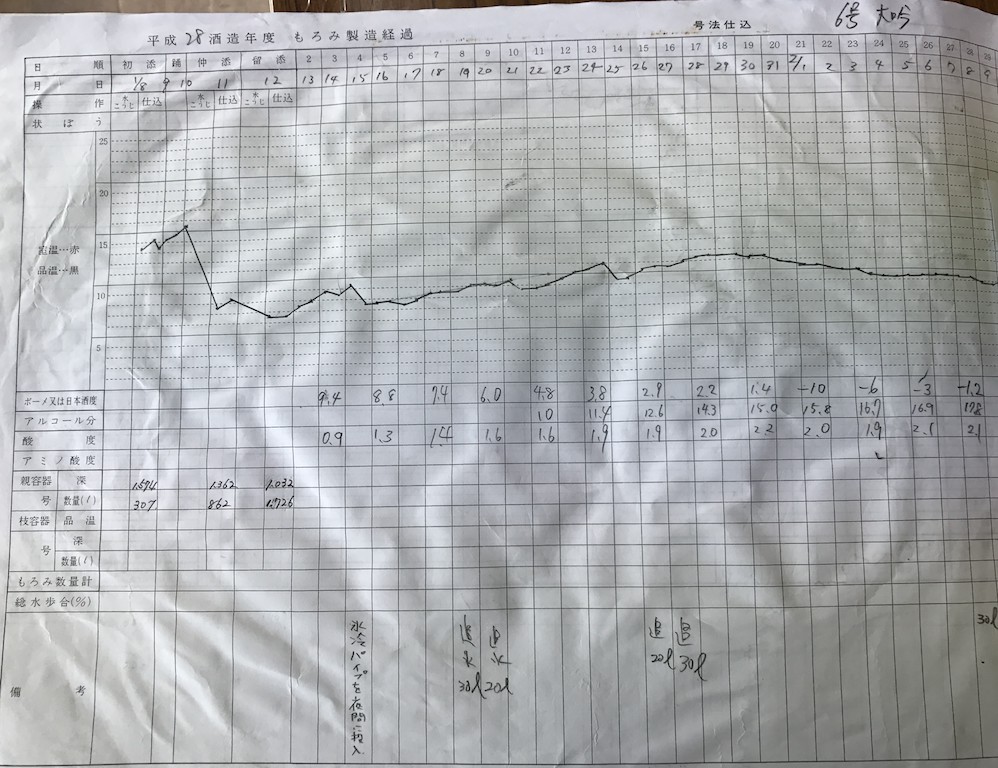 6号 大吟
平成28酒造年度 もろみ製造経過 号法仕込
日順 初添 踊 仲添 留添 2 3 4 5 6 7 8 9 10 11 12 13 14 15 16 17 18 19 20 21 22 23 24 25 26 27 28 29
月日 1/8 9 10 11 12 13 14 15 16 17 18 19 20 21 22 23 24 25 26 27 28 29 30 31 2/1 2 3 4 5 6 7 8 9
操作 水こうじ 仕込 水こうじ 仕込 水こうじ 仕込
状ぼう
25
20
15
室温…赤
品温…黒
10
5
ボーメ又は日本酒度 9.4 8.8 7.4 6.0 4.8 3.8 2.9 2.2 1.4 -10 -6 -3 -1.2
アルコール分 10 11.4 12.6 14.3 15.0 15.8 16.7 16.9 17.8
酸度 0.9 1.3 1.4 1.6 1.6 1.9 1.9 2.0 2.2 2.0 1.9 2.1 2.1
アミノ酸度
親容器 深 1.574 1.362 1.032
号 数量(ℓ) 307 862 1.726
枝容器 品温
号 深
数量(ℓ)
もろみ数量計
総水歩合(%)
備考
氷冷パイプを夜間に投入
追水 30ℓ
追水 20ℓ
追 20ℓ
追 30ℓ
30ℓ